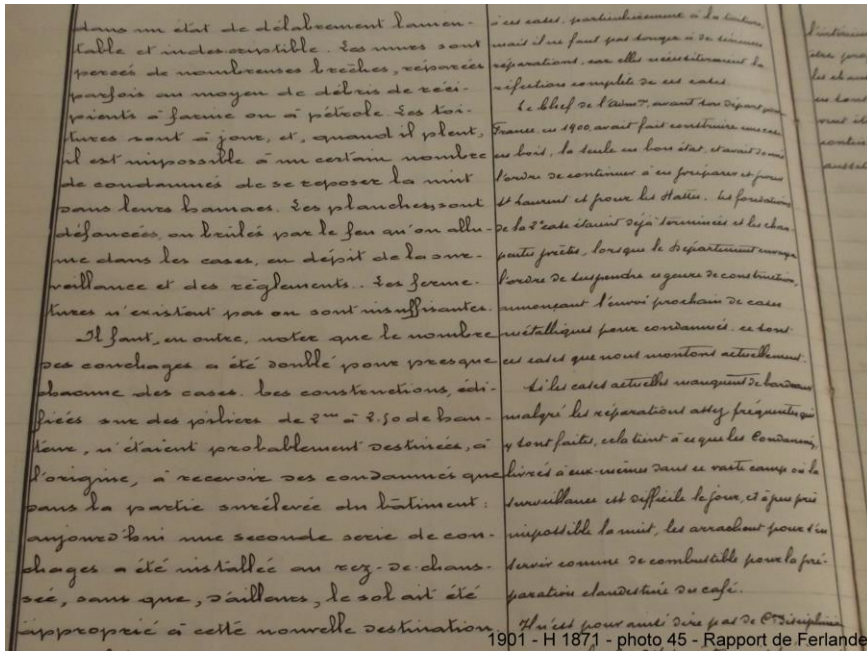 dans un état de délabrement lamen-
table et indescriptible. Les murs sont
percés de nombreuses brèches, réparées
parfois au moyen de débris de réci-
pients à farine ou à pétrole. Les toi-
tures sont à jour, et, quand il pleut,
il est impossible à un certain nombre
de condamnés de se reposer la nuit
dans leurs hamacs. Les planches sont
défoncées, ou brûlées par le feu qu'on allu-
me dans les cases, en dépit de la sur-
veillance et des règlements. Les ferme-
tures n'existent pas ou sont insuffisantes.
Il faut, en outre, noter que le nombre
des couchages a été doublé pour presque
chacune des cases. Les constructions, édi-
fiées sur des piliers de 2m à 2.50 de hau-
teur, n'étaient probablement destinées, à
l'origine, à recevoir des condamnés que
dans la partie surélevée du bâtiment:
aujourd'hui une seconde serie de cou-
chages a été installée au rez-de-chaus-
sée, sans que, d'ailleurs, le sol ait été
approprié à cette nouvelle destination.
à ces cases, particulièrement à la toiture,
mais il ne faut pas songer à de sérieuses
réparations, car elles nécessiteraient la
réfection complète de ces cases.
Le Chef de l'Adm.on, avant son départ pour
France en 1900, avait fait construire une case
en bois, la seule en bon état, et avait donné
l'ordre de continuer à en préparer et pour
St Laurent et pour les Hattes. Les fondations
de la 2e case étaient déjà terminées et les char-
pentes prêtes, lorsque le Département envoya
l'ordre de suspendre ce genre de construction,
annonçant l'envoi prochain de cases
métalliques pour condamnés. ce sont
ces cases que nous montons actuellement.
Si les cases actuelles manquent de bardeaux
malgré les réparations assez fréquentes qui
y sont faites, cela tient à ce que les Condamnés,
livrés à eux-mêmes dans ce vaste camp où la
surveillance est difficile le jour, et à peu près
impossible la nuit, les arrachent pour s'en
servir comme de combustible pour la pré-
paration clandestine du café.
Il n'est pour ainsi dire pas de Cie Discipline
l'intérieur
les cham
1901 - H 1871 - photo 45 - Rapport de Ferlande